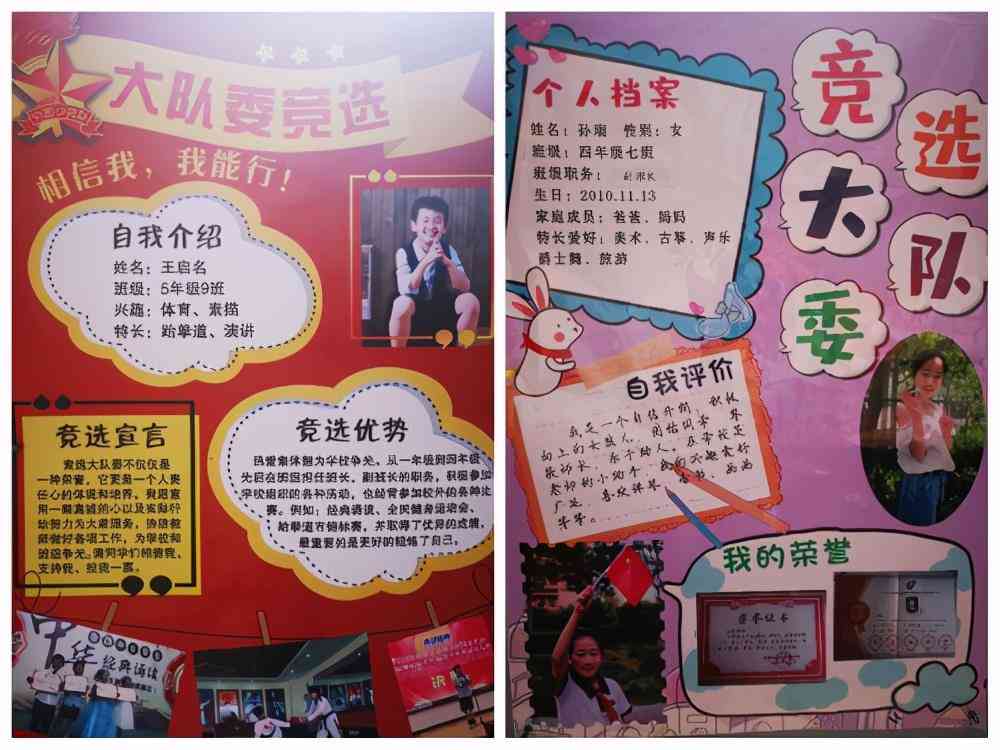 大队委竞选
相信我，我能行！
自我介绍
姓名：王启名
班级：5年级9班
兴趣：体育、素描
特长：跆拳道、演讲
竞选宣言
竞选大队委不仅仅是
一种荣誉，它更是一个人责
任心的体现和培养。我愿意
用一颗真诚的心以及实际行
动努力为大家服务，协助教
师做好各项工作，为学校和
班级争光。请同学们相信我，
支持我、投我一票。
竞选优势
热爱集体愿为学校争光。从一年级到四年级
先后在班级担任班长、副班长的职务，积极参加
学校组织的各种活动，也经常参加校外的各种比
赛。例如：经典诵读、全民健身运动会、
跆拳道市锦标赛，并取得了优异的成绩，
最重要的是更好的锻炼了自己。
中华
经典诵读
竞选大队委
个人档案
姓名：孙 性别：女
班级：四年级七班
班级职务：副班长
生日：2010.11.13
家庭成员：爸爸、妈妈
特长爱好：美术、古筝、声乐
爵士舞、旅游
自我评价
我是一个自信开朗，积极
向上的女孩儿，团结同学，尊
敬师长，乐于助人。在学校是
老师的小助手，我的兴趣爱好
广泛，喜欢弹琴、看书、画画
等等。
我的荣誉